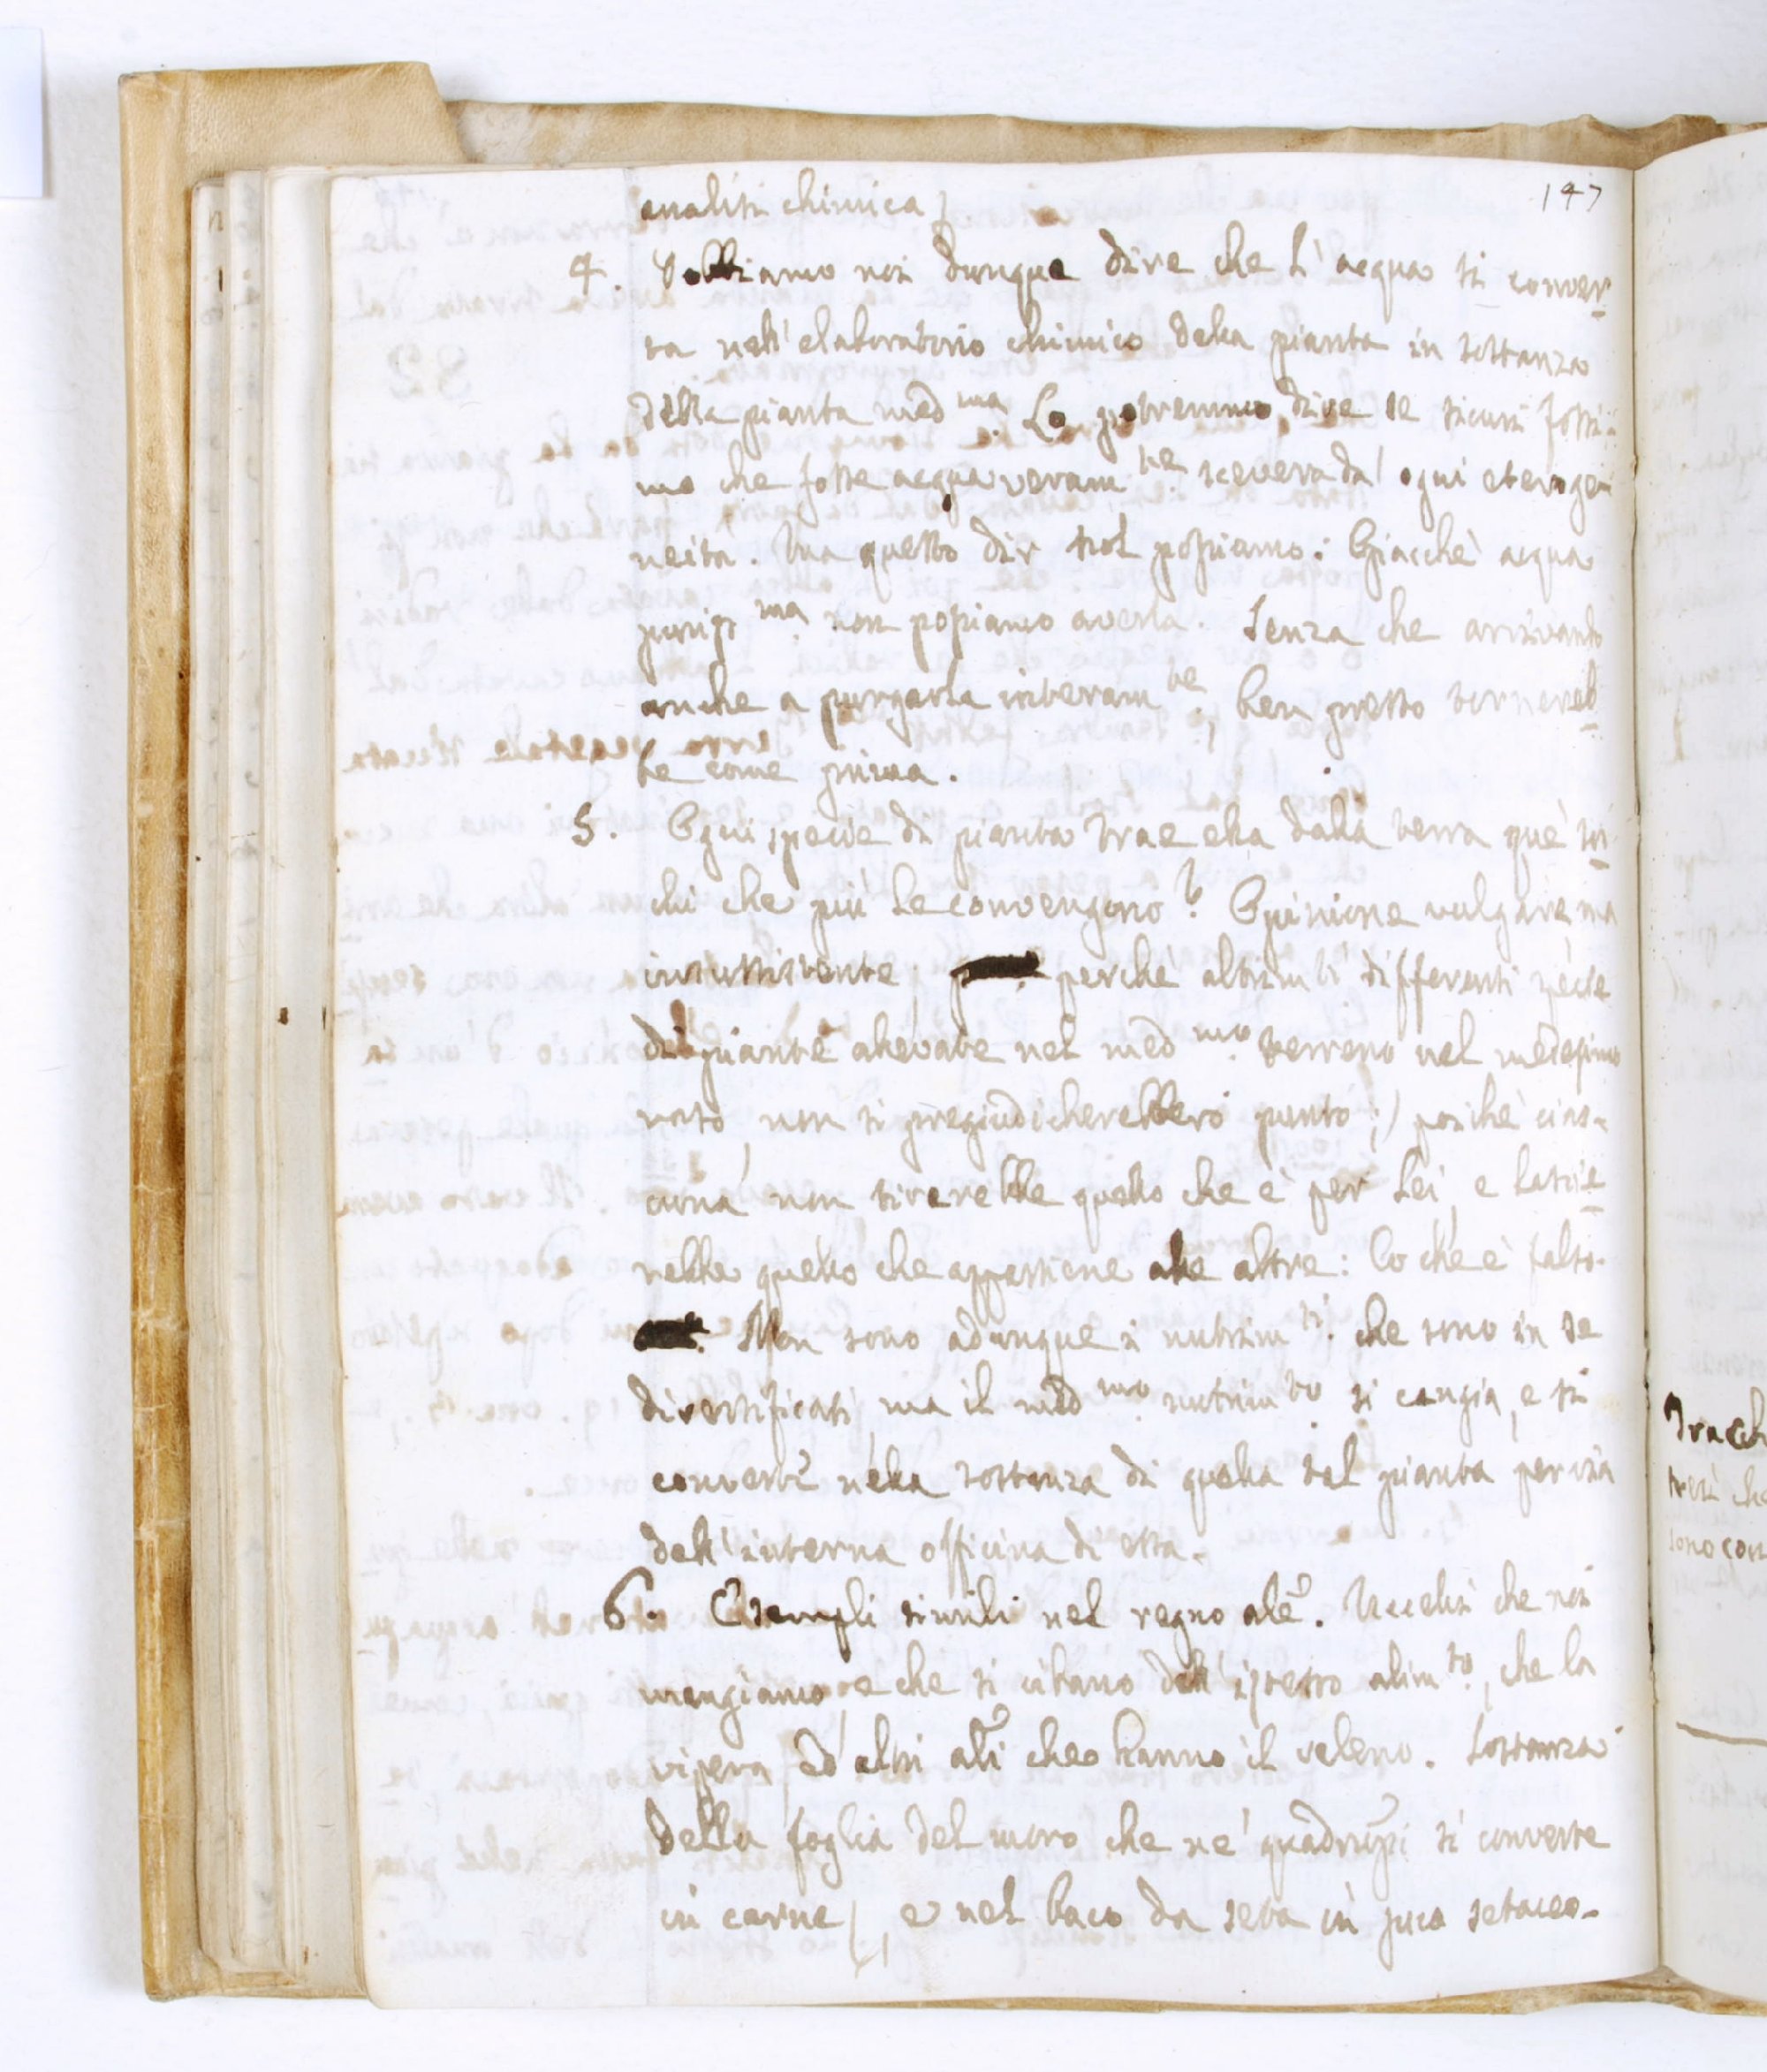 147
analisi chimica)
4. Dobbiamo noi dunque dire che l'acqua si conver-
ta nell'elaboratorio chimico della pianta in sostanza
della pianta med.ma Lo potremmo dire se sicuri fossi-
mo che fosse acqua veram.te scevera da ogni eteroge-
neità. Ma questo dir nol possiamo: Giacchè acqua
puriss.ma non possiamo averla. Senza che arrivando
anche a purgarla interam.te, ben presto tornereb-
be come prima.
5. Ogni specie di pianta trae ella dalla terra que' su-
chi che più le convengono? Opinione vulgare ma
insussistente, perchè altrim.ti differenti specie
di piante allevate nel med.mo terreno nel medesimo
vaso non si pregiudicherebbero punto; poichè cias-
cuna non tirerebbe quello che è per lei, e lascie-
rebbe quello che appartiene alle altre: Lo che è falso.
Non sono adunque i nutrim.ti che sono in se
diversificati ma il med.mo nutrim.to si cangia, e si
converte nella sostanza di quella tal pianta per via
dell'interna officina di essa.
6. Esempli simili nel regno ale. Uccelli che noi
mangiamo, e che si cibano dell'istesso alim.to, che la
vipera, ed altri ali che hanno il veleno. Sostanza
della foglia del moro che ne' quadrupi si converte
in carne, e nel baco da seta in suco setaceo.
Tracch
sono con